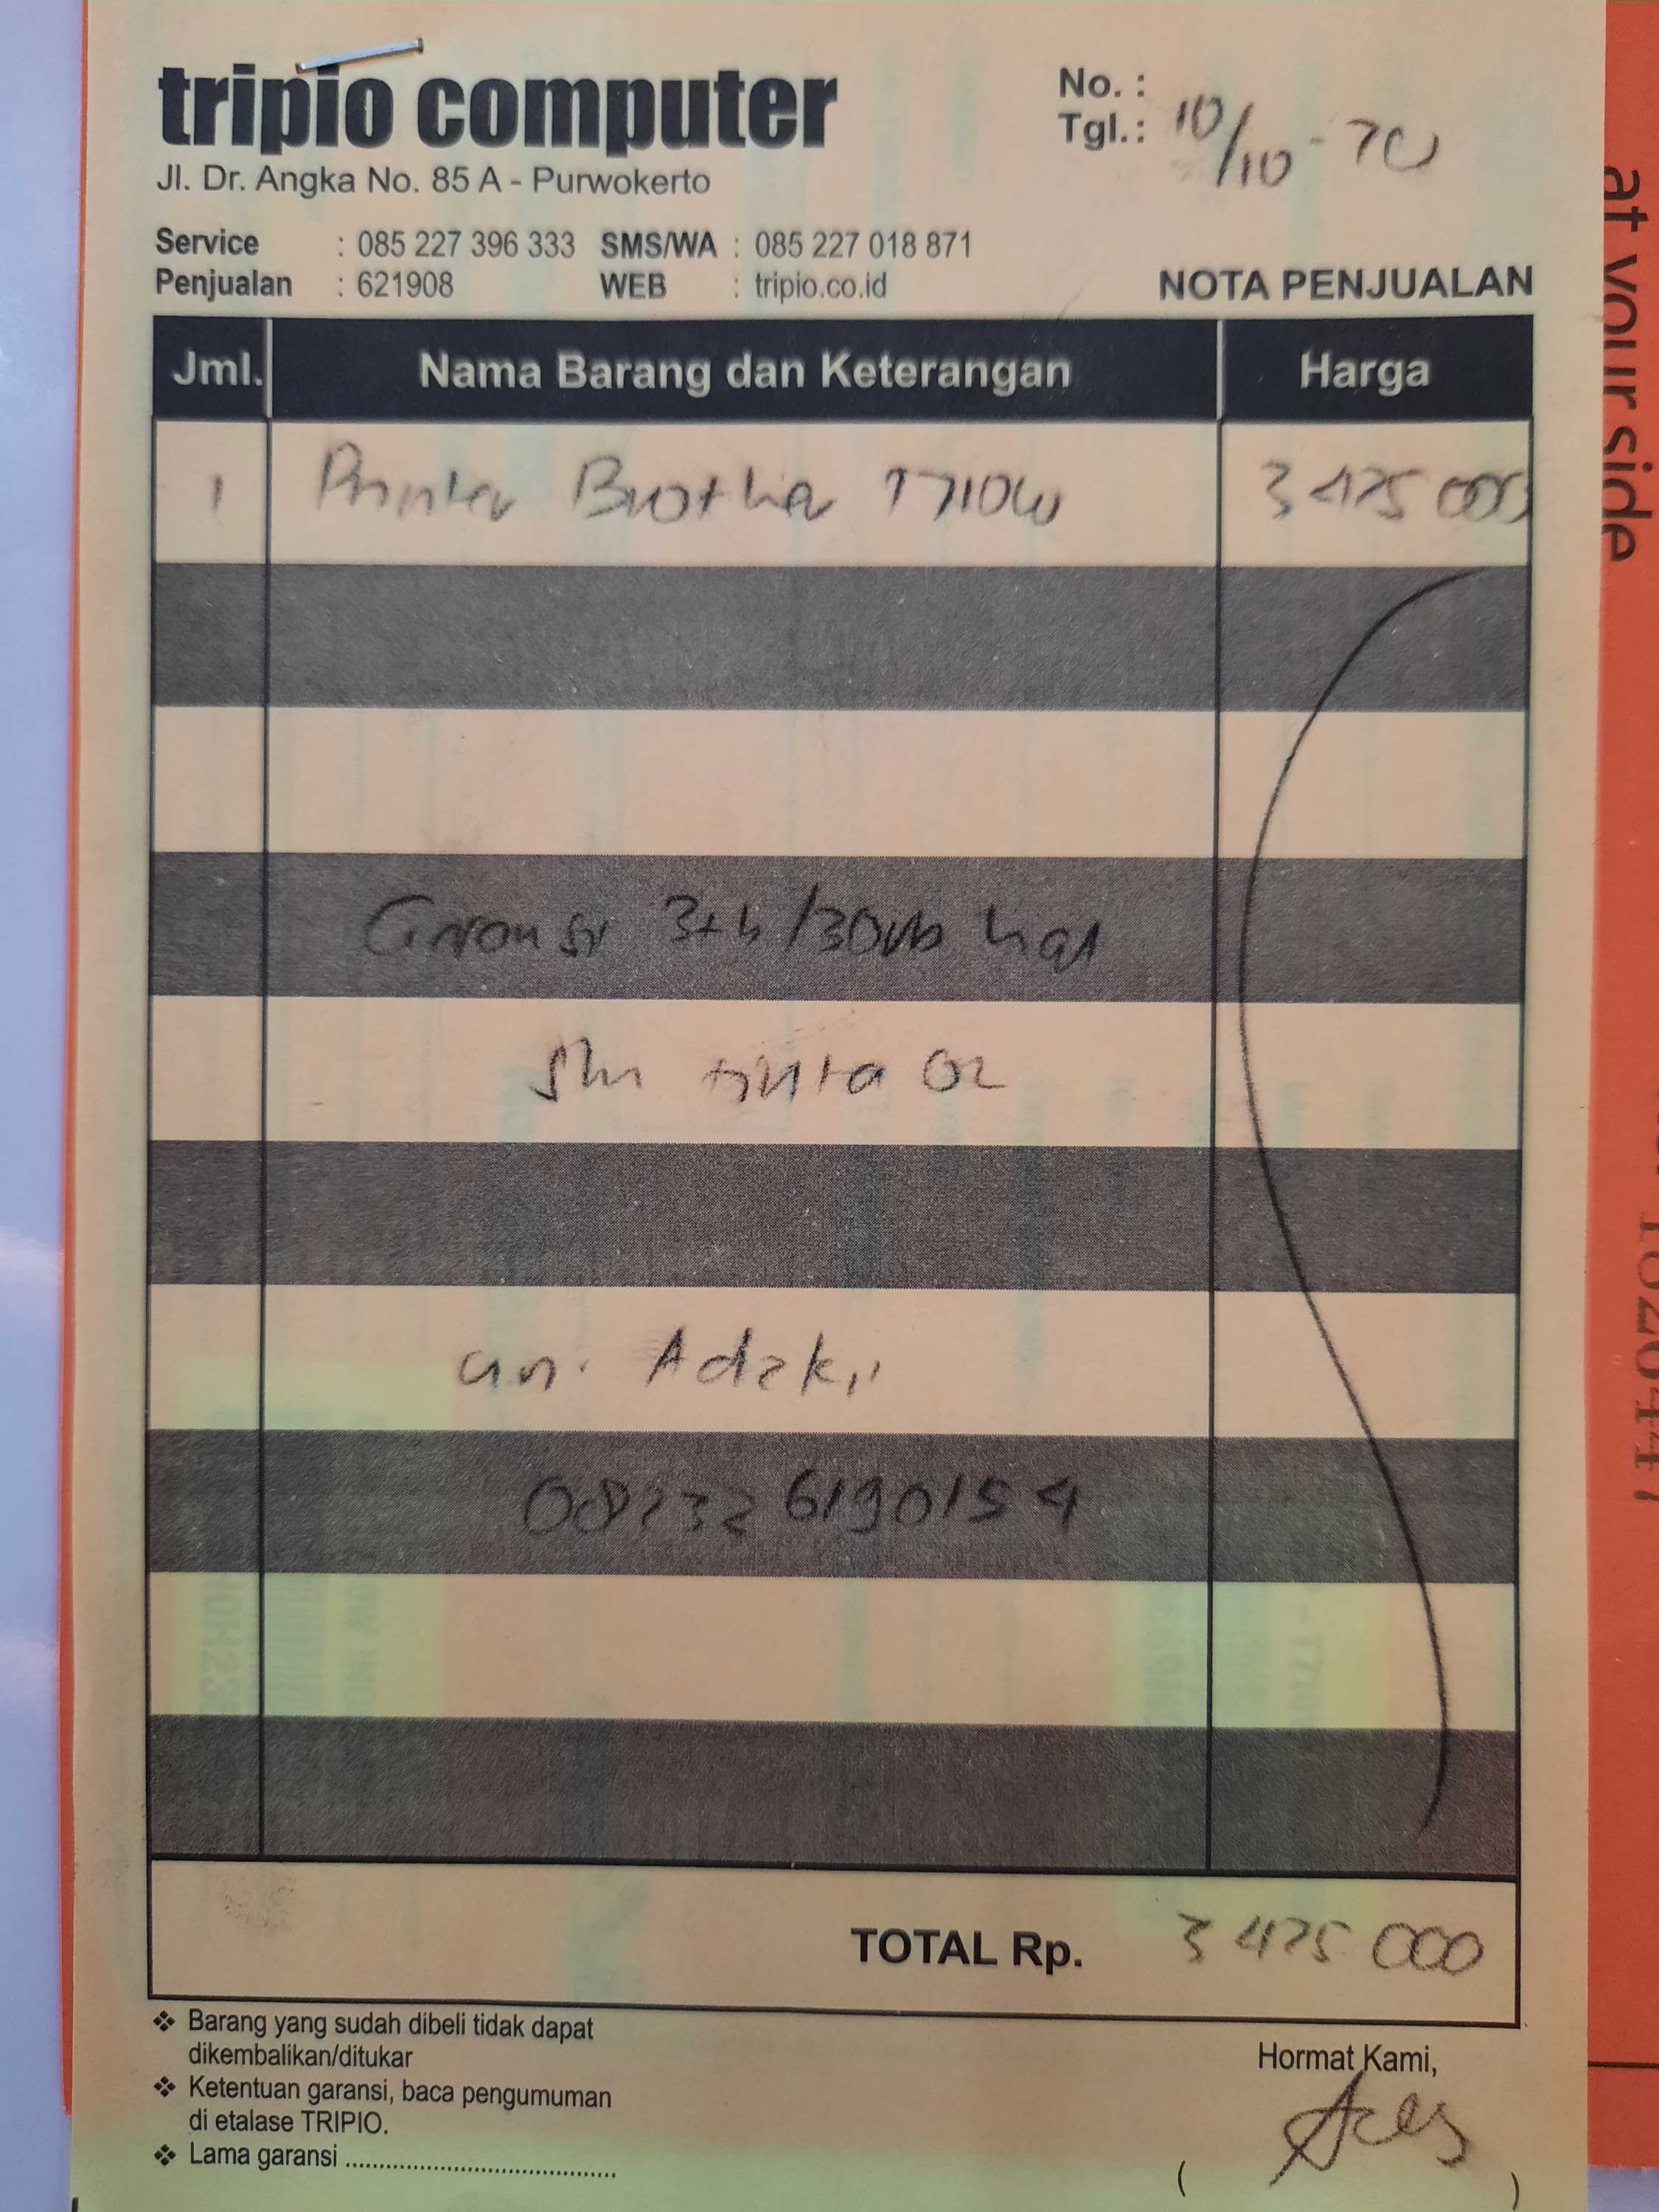 tripio computer
Jl. Dr. Angka No. 85 A - Purwokerto
No. :
Tgl.: 10/10 - 20
Service : 085 227 396 333 SMS/WA : 085 227 018 871
Penjualan : 621908 WEB : tripio.co.id
NOTA PENJUALAN
Jml. Nama Barang dan Keterangan Harga
1 Printer Brother T710W 3 425 000
Garansi 3th/30rb hal
tinta
an. Adzkii
082326190154
TOTAL Rp. 3 425 000
❖ Barang yang sudah dibeli tidak dapat
dikembalikan/ditukar
❖ Ketentuan garansi, baca pengumuman
di etalase TRIPIO.
❖ Lama garansi ........................................
Hormat Kami,
( )
at your side